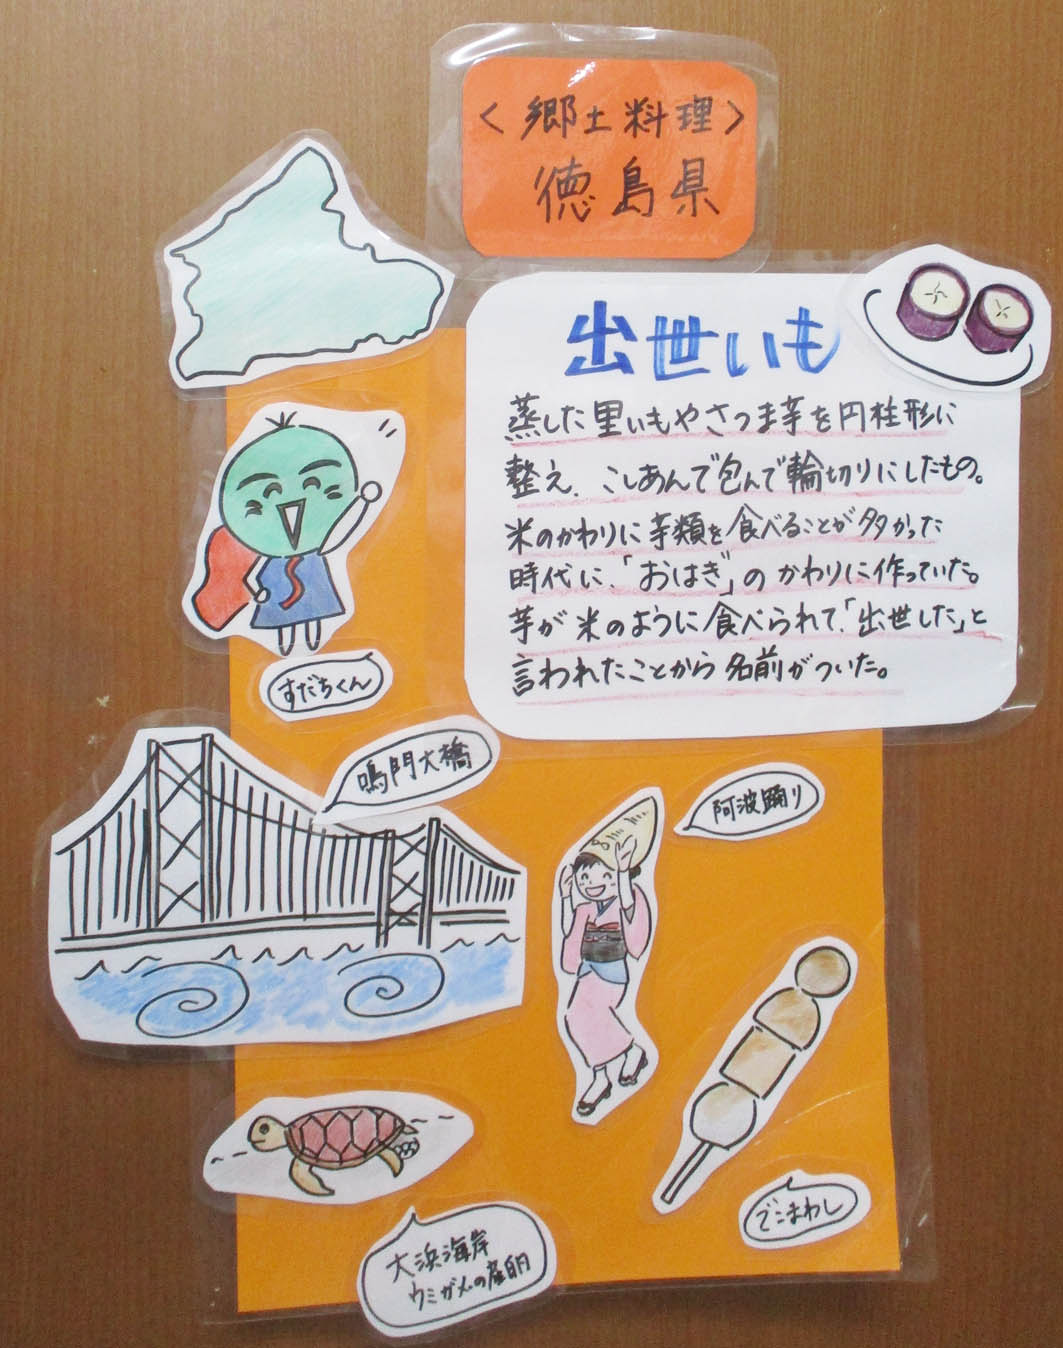 〈郷土料理〉
徳島県
出世いも
蒸した里いもやさつま芋を円柱形に
整え、こしあんで包んで輪切りにしたもの。
米のかわりに芋類を食べることが多かった
時代に、「おはぎ」のかわりに作っていた。
芋が米のように食べられて、「出世した」と
言われたことから名前がついた。
すだちくん
鳴門大橋
阿波踊り
でこまわし
大浜海岸
ウミガメの産卵